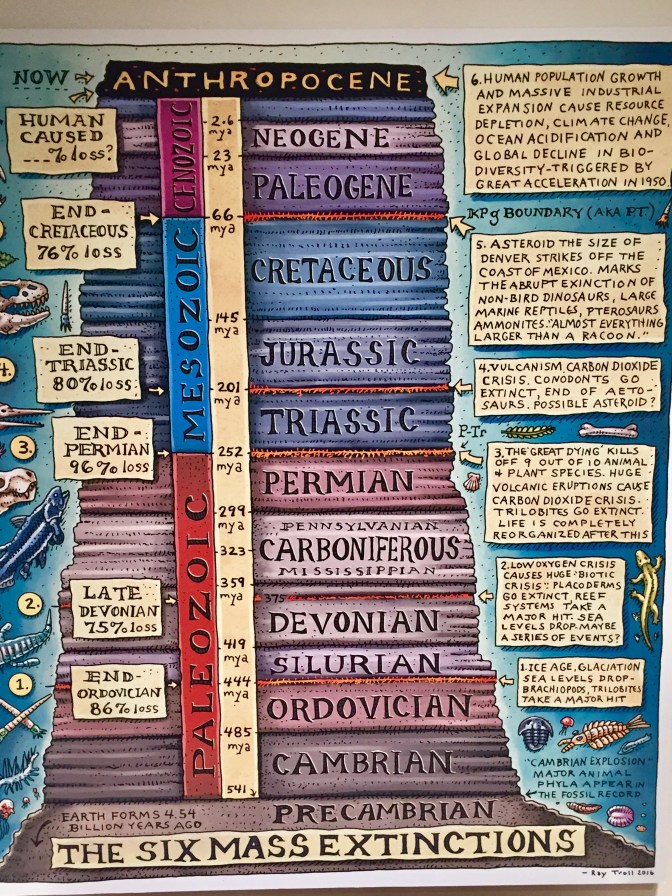 NOW
ANTHROPOCENE
HUMAN
CAUSED
...% loss?
6. HUMAN POPULATION GROWTH
AND MASSIVE INDUSTRIAL
EXPANSION CAUSE RESOURCE
DEPLETION, CLIMATE CHANGE,
OCEAN ACIDIFICATION AND
GLOBAL DECLINE IN BIO-
DIVERSITY-TRIGGERED BY
GREAT ACCELERATION IN 1950
CENOZOIC
2.6
mya
NEOGENE
23
mya
PALEOGENE
66
mya
KPg BOUNDARY (AKA P.T.)
END-
CRETACEOUS
76% loss
MESOZOIC
CRETACEOUS
5. ASTEROID THE SIZE OF
DENVER STRIKES OFF THE
COAST OF MEXICO. MARKS
THE ABRUPT EXINCTION OF
NON-BIRD DINOSAURS, LARGE
MARINE REPTILES, PTEROSAURS
AMMONITES. "ALMOST EVERYTHING
LARGER THAN A RACOON."
145
mya
JURASSIC
4.
END-
TRIASSIC
80% loss
201
mya
4. VULCANISM, CARBON DIOXIDE
CRISIS. CONODONTS GO
EXTINCT, END OF AETO-
SAURS. POSSIBLE ASTEROID?
TRIASSIC
P-Tr
3.
END-
PERMIAN
96% loss
252
mya
3. THE 'GREAT DYING' KILLS
OFF 9 OUT OF 10 ANIMAL
& PLANT SPECIES. HUGE
VOLCANIC ERUPTIONS CAUSE
CARBON DIOXIDE CRISIS.
TRILOBITES GO EXTINCT.
LIFE IS COMPLETELY
REORGANIZED AFTER THIS
PALEOZOIC
PERMIAN
299
mya
PENNSYLVANIAN
323
CARBONIFEROUS
MISSISSIPPIAN
359
mya
375
2.
LATE
DEVONIAN
75% loss
DEVONIAN
2. LOW OXYGEN CRISIS
CAUSES HUGE "BIOTIC
CRISIS". PLACODERMS
GO EXTINCT, REEF
SYSTEMS TAKE A
MAJOR HIT. SEA
LEVELS DROP. MAYBE
A SERIES OF EVENTS?
419
mya
SILURIAN
1.
END-
ORDOVICIAN
86% loss
444
mya
1. ICE AGE, GLACIATION
SEA LEVELS DROP-
BRACHIOPODS, TRILOBITES
TAKE A MAJOR HIT
ORDOVICIAN
485
mya
CAMBRIAN
"CAMBRIAN EXPLOSION"
MAJOR ANIMAL
PHYLA APPEAR IN
THE FOSSIL RECORD
541
PRECAMBRIAN
EARTH FORMS 4.54
BILLION YEARS AGO
THE SIX MASS EXTINCTIONS
- Ray Troll 2016